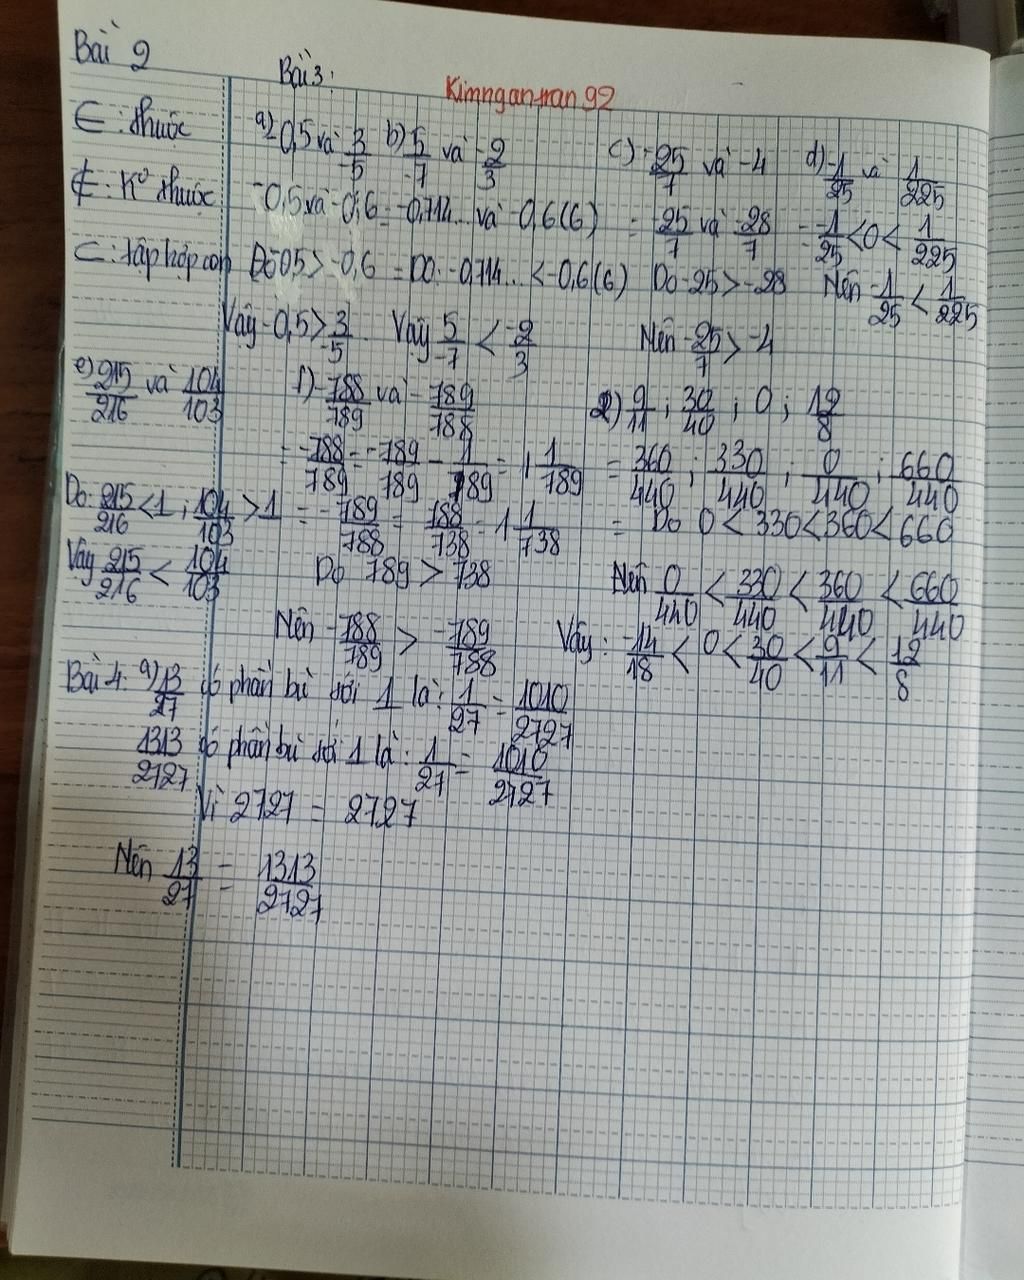 Bài 2
Bài 3:
Kimngan-tran 92
∈: thuộc
a) 0,5 và 3/-5 b) 5/-7 và -2/3 c) -25/7 và -4 d) -1/25 và 1/225
∉: Ko thuộc
-0,5 và -0,6 = -0,714... và -0,6(6) = -25/7 và -28/7 = -1/25 < 0 < 1/225
⊂: tập hợp con
Do 0,5 > -0,6 = Do: -0,714... < -0,6(6) Do -25 > -28 Nên -1/25 < 1/225
Vậy -0,5 > 3/-5 Vậy 5/-7 < -2/3 Nên -25/7 > -4
e) 215/216 và 104/103 f) -788/789 và -789/788 2) 9/11 ; 30/40 ; 0 ; 12/8
= -788/789 = -789/789 - 1/789 = 1 1/789 = 360/440 ; 330/440 ; 0/440 ; 660/440
Do: 215/216 < 1 ; 104/103 > 1 = -789/788 = 788/738 - 1 1/738 = Do 0 < 330 < 360 < 660
Vậy 215/216 < 104/103 Do 789 > 738 Nên 0/440 < 330/440 < 360/440 < 660/440
Nên -788/789 > -789/788 Vậy: -14/18 < 0 < 30/40 < 9/11 < 12/8
Bài 4: a) 13/27 có phần bù với 1 là: 1/27 = 1010/2727
1313/2727 có phần bù với 1 là: 1/27 = 1010/2727
Vì 2727 = 2727
Nên 13/27 = 1313/2727